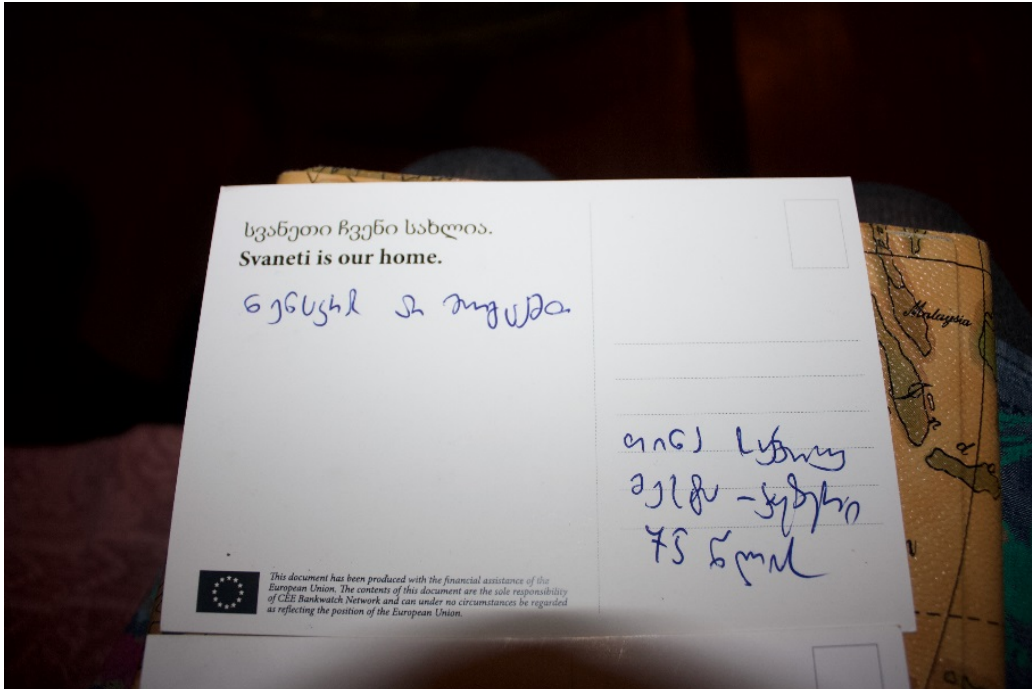 სვანეთი ჩვენი სახლია.
Svaneti is our home.
ნენსკრს არ მივცემთ
თინა
75 წლის
This document has been produced with the financial assistance of the
European Union. The contents of this document are the sole responsibility
of CEE Bankwatch Network and can under no circumstances be regarded
as reflecting the position of the European Union.
Malaysia